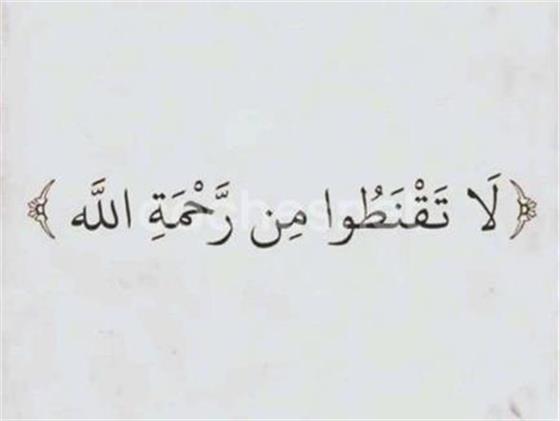 ﴿لَا تَقْنَطُوا مِن رَّحْمَةِ اللَّه﴾